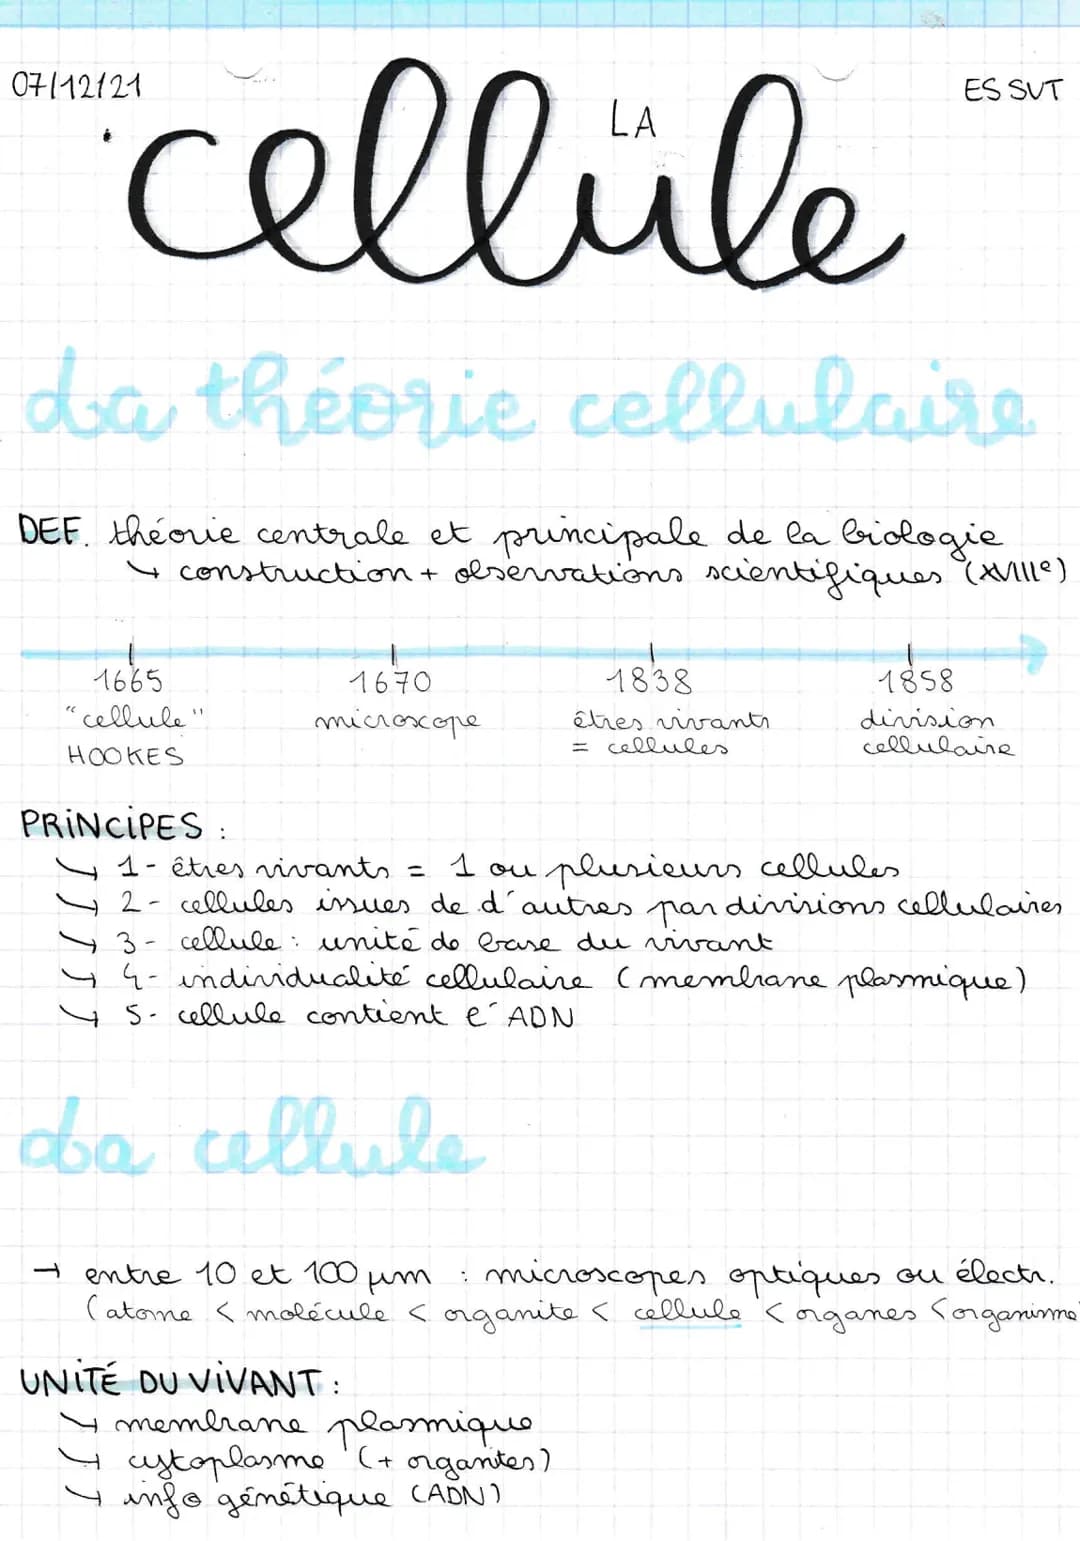 07/12/21
ES SVT
LA
cellule
La théorie cellulaire
DEF. théorie centrale et principale de la biologie
↳ construction + observations scientifiques (XVIIIe)
1665 1670 1838 1858
"cellule" microscope êtres vivants division
HOOKES = cellules cellulaire
PRiNCiPES :
↳ 1- êtres vivants = 1 ou plusieurs cellules
↳ 2- cellules issues de d'autres par divisions cellulaires
↳ 3- cellule : unité de base du vivant
↳ 4- individualité cellulaire (membrane plasmique)
↳ 5- cellule contient l'ADN
La cellule
→ entre 10 et 100 µm : microscopes optiques ou électr.
(atome < molécule < organite < cellule < organes < organisme
UNiTÉ DU ViVANT :
↳ membrane plasmique
↳ cytoplasme (+ organites)
↳ info génétique (ADN)